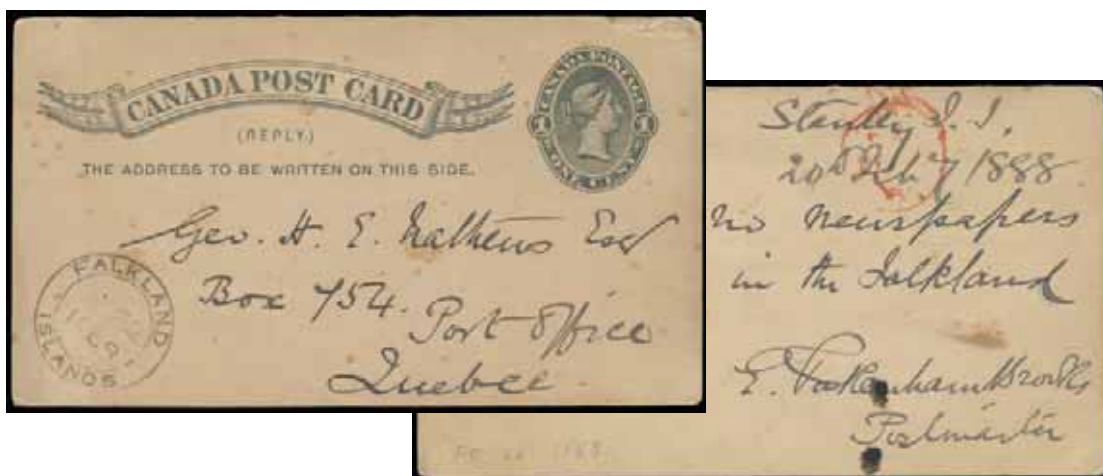 CANADA POST CARD
(REPLY)
THE ADDRESS TO BE WRITTEN ON THIS SIDE.
CANADA POSTAGE
ONE CENT
Geo. H. E. Mathews Esq
Box 754.
Post Office
Quebec
FALKLAND
ISLANDS
Stanley F. I,
20th Feby 1888
no newspapers
in the Falkland
E. Pakenham Brooks
Postmaster